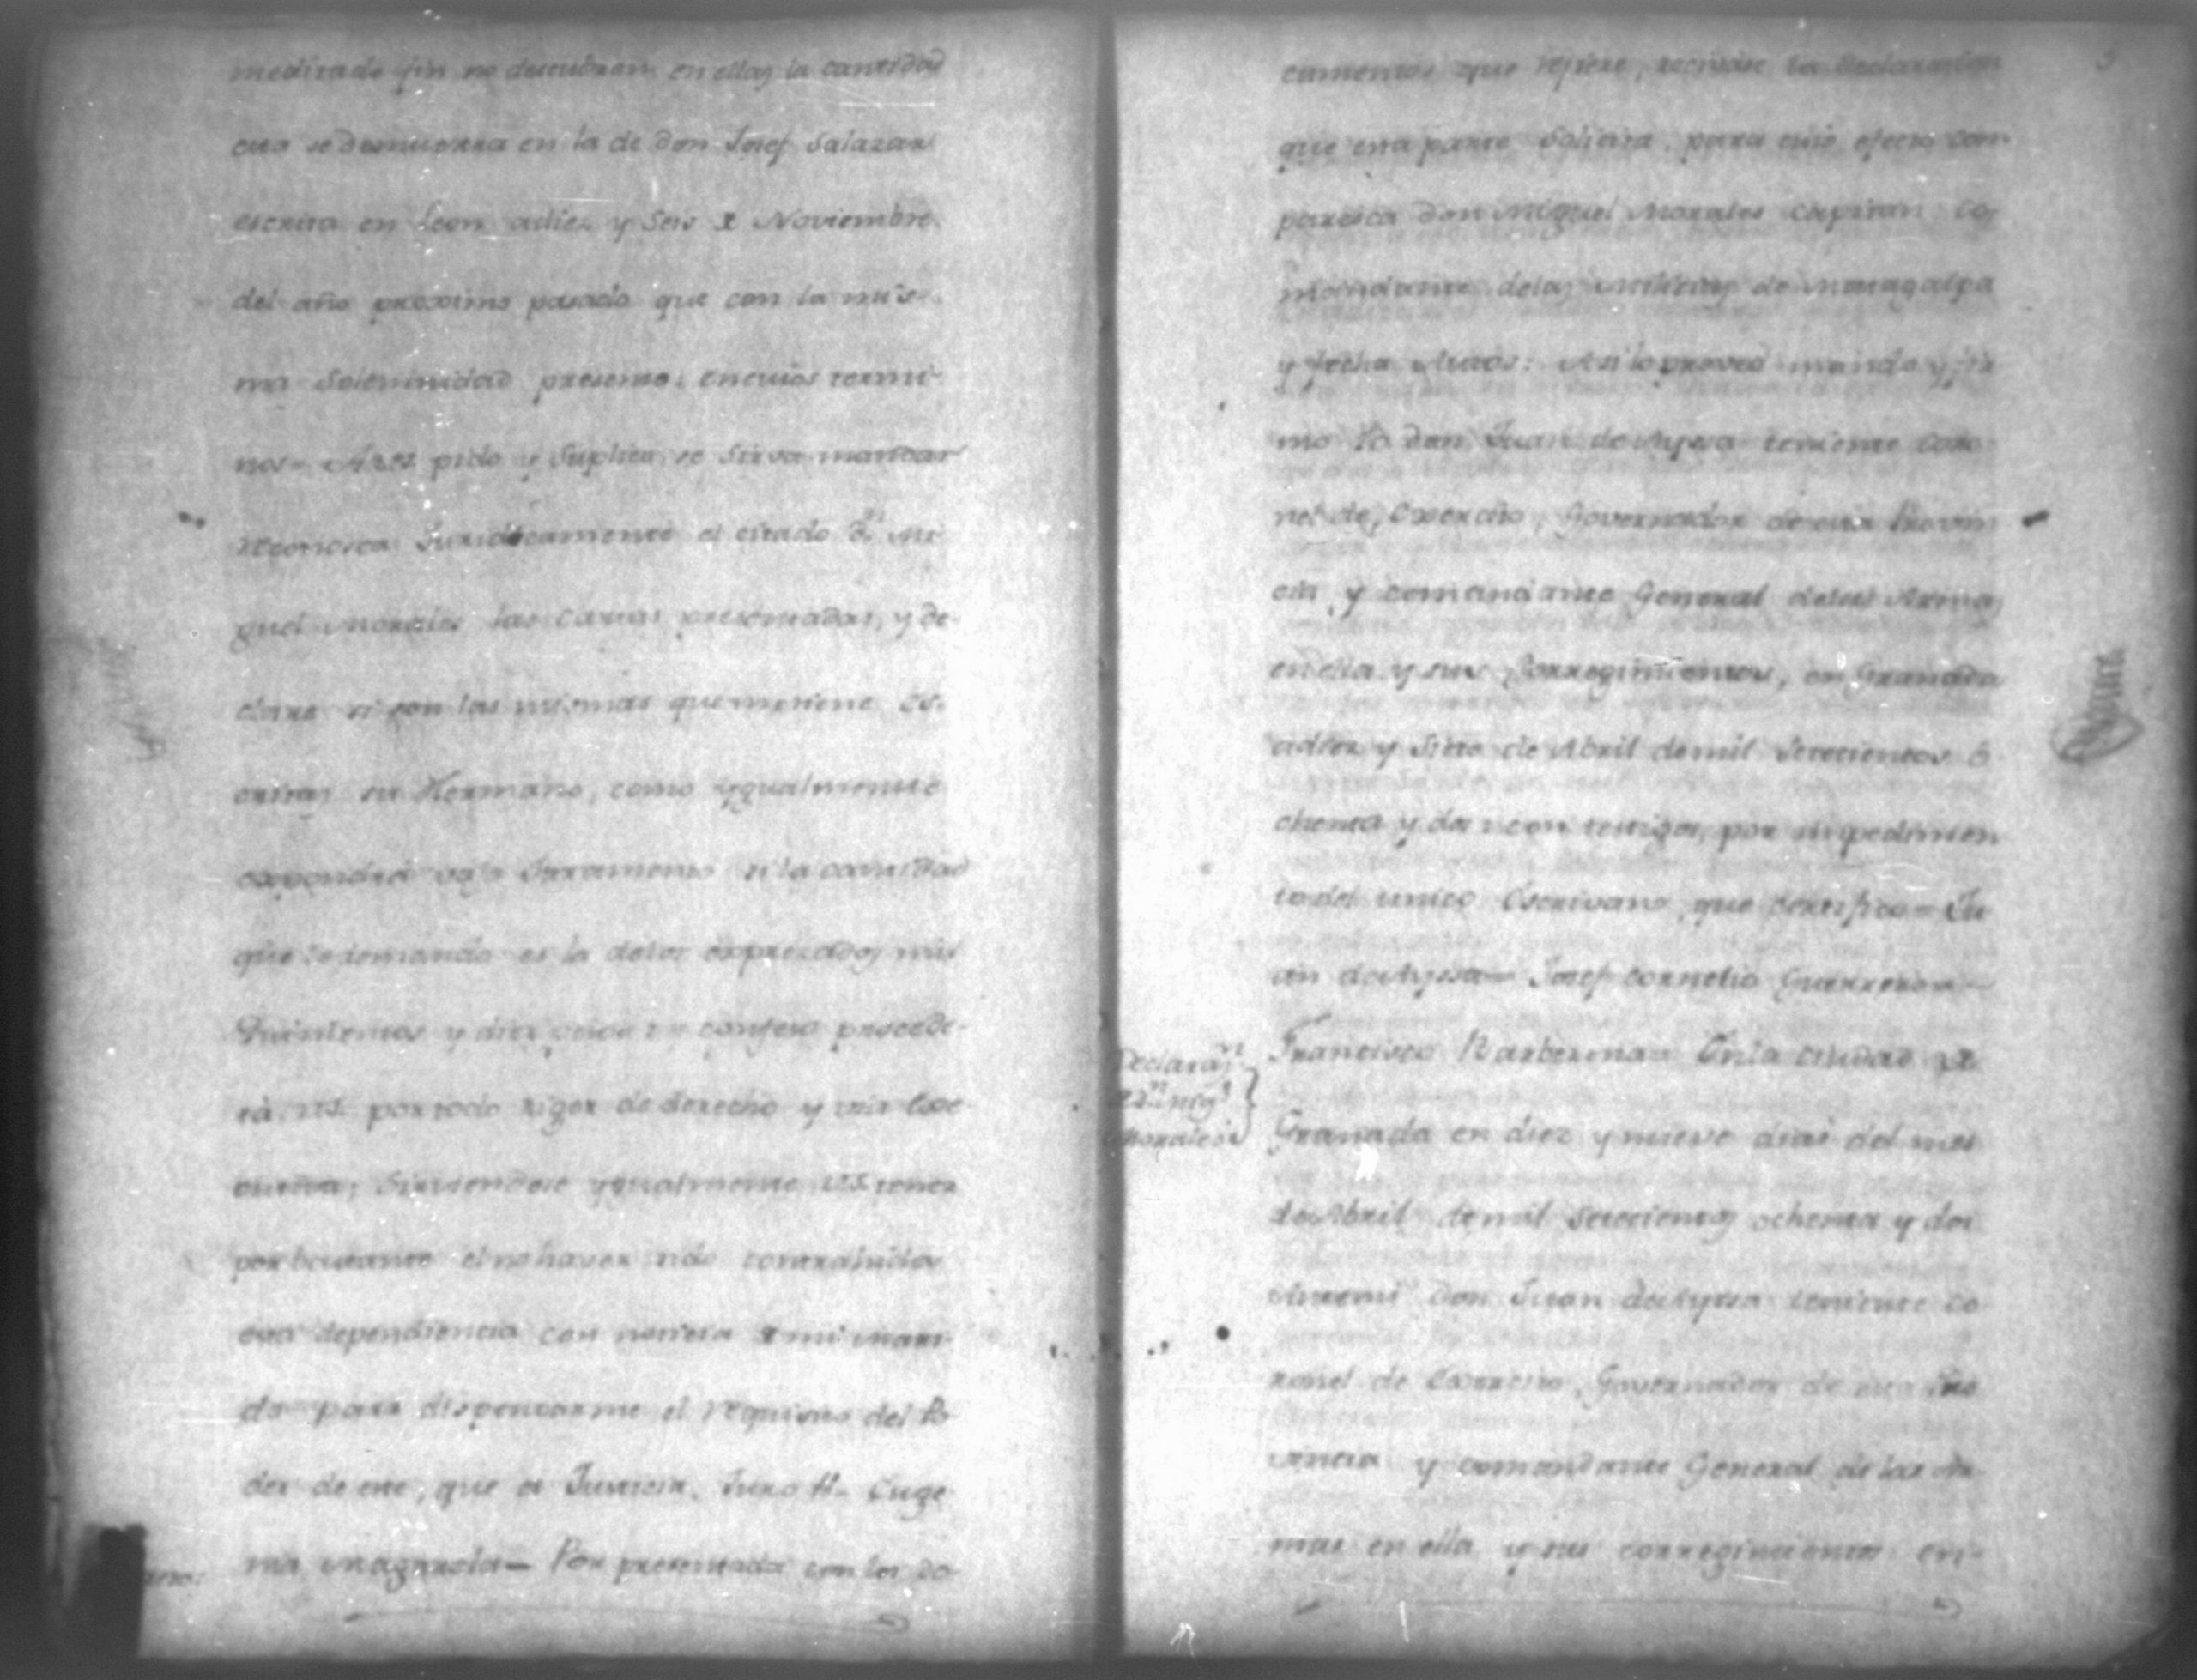 meditado fin no descubren en ellas la cantidad
cuo se demuestra en la de don Josef Salazar
escrita en Leon adiez y Seis de Noviembre
del año proximo pasado que con la mis-
ma Solemnidad presento: encuios termi-
nos= A V.S. pido y Suplico se sirva mandar
reconosca Juridicamente el citado Dn. Mi-
guel Morales las cartas presentadas, y de-
clare si son las mismas que mantiene Es-
critas su Hermano, como ygualmente
expondrá vajo Juramento si la cantidad
que se demanda es la delos expresados mil
Quinientos y diez y confeso procede-
rá V.S. por todo rigor de derecho y via Exe-
cutiva; Sirviendose ygualmente V.S. tener
por bastante el no haver sido contrahida
esta dependiencia con noticia de mi mari-
do para dispensarme el requisito del Po-
der de este, que es Justicia, Juro &a. Euge-
nia Magarola= Por presentada con los do-
cumentos que refiere, recivase la Declaracion
que esta parte Solicita, para cuio efecto com-
paresca don Miguel Morales Capitan Co-
mandante delas milicias de Matagalpa
y fecha Autos: Asi lo proveo mando y fir
mo Yo don Juan de Ayssa teniente Coro
nel de, Exercito, Governador de esta Provin
cia, y comandante General delas Armas
en ella y sus Corregimientos, en Granada
adiez y Siete de Abril demil Setecientos o
chenta y dos con testigos, por impedimen
to del unico Escrivano, que Certifico= Ju
an de Ayssa= Josef Cornelio Guerrero=
Declaran.
Dn. Migl.
Morales
Francisco Barberena= Enla ciudad de
Granada en diez y nueve dias del mes
de Abril demil Setecientos ochenta y dos
Antemi Don Juan de Ayssa teniente Co
ronel de Exercito, Governador de esta Pro
vincia y comandante General de las Ar-
mas en ella y sus corregimientos en-